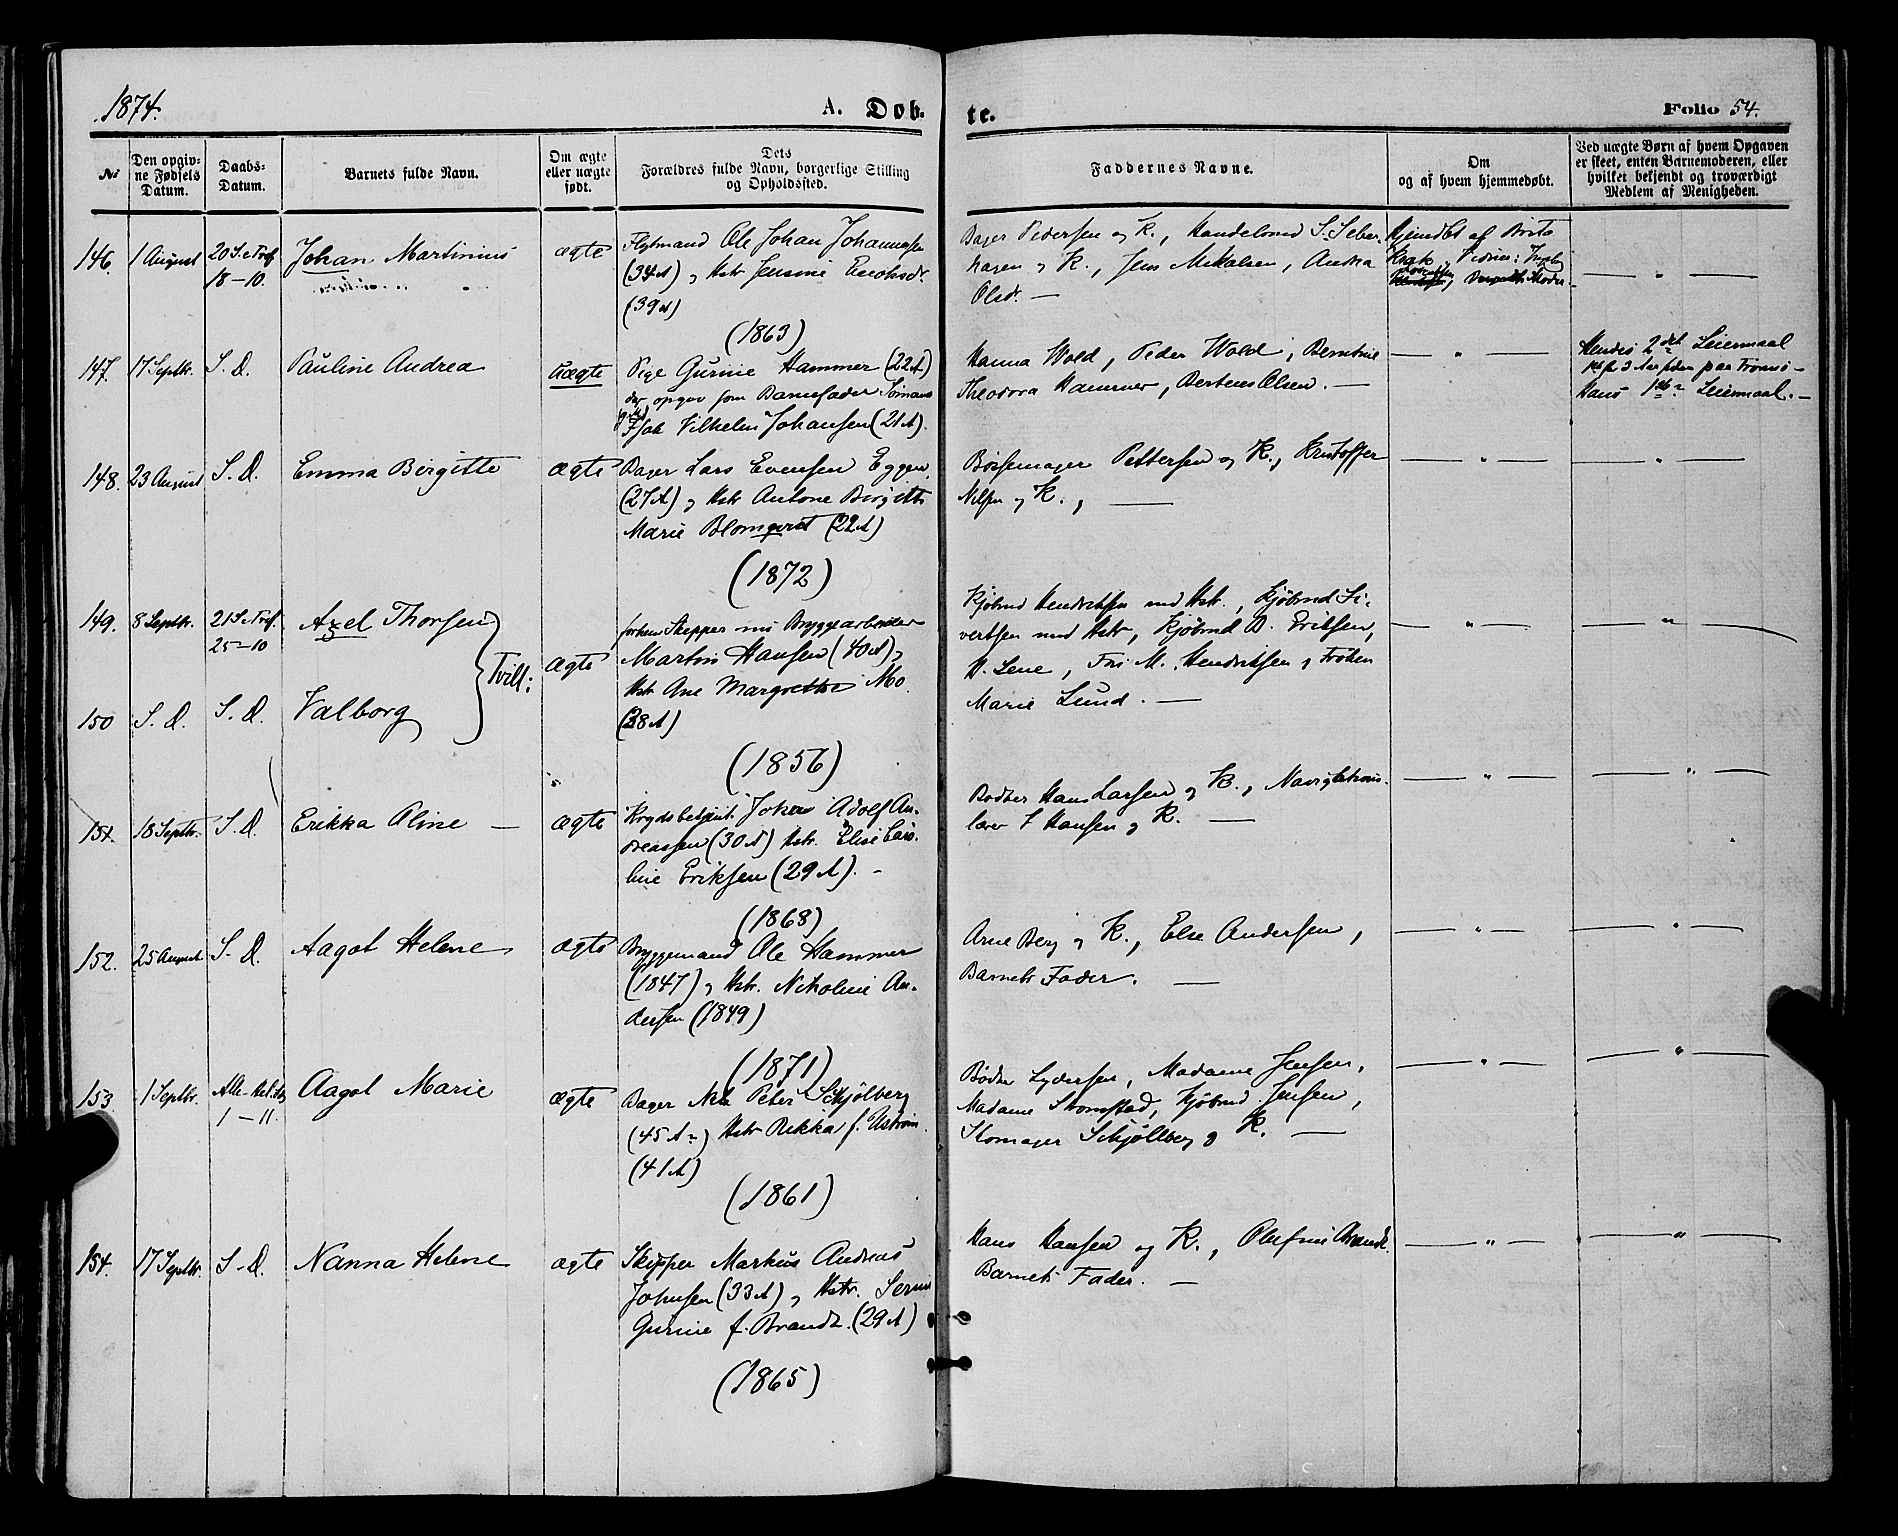 1874.
A. Døb-
te.
Folio 54.
No
Den opgiv-
ne Fødsels
Datum.
Daabs-
Datum.
Barnets fulde Navn.
Om ægte
eller uægte
født.
Dets
Forældres fulde Navn, borgerlige Stilling
og Opholdssted.
Faddernes Navne.
Om
og af hvem hjemmedøbt.
Ved uægte Børn af hvem Opgaven
er skeet, enten Barnemoderen, eller
hvilket bekjendt og troværdigt
Medlem af Menigheden.
146. 1 August 20 S. e Tref. Johan Martinius ægte
18-10.
Ole Johan Johannesen
(34 A) og Hstr Jensine Enochsdr.
(39 A)
(1863)
Bager Pedersen og K., Handelsmd S.
hagen og K., Jens Mikalsen, Andrea
Olsdr. —
Hjemdbt af
— " —
147. 17 Septbr. S. D. Pauline Andrea uægte
Pige Gurine Hammer (22 A)
der opgav som Barnefader Sømand
Vilhelm Johansen (21 A).
Hanna Wold, Peder Wold, Berntine
Theodora Hammer, Bertens Olsen. —
— " —
Hendes 2det Leiermaal
Hans 1ste Leiermaal. —
148. 23 August S. D. Emma Birgitte ægte
Bager Lars Evensen Eggen
(27 A) og Hstr Antone Birgitte
Marie Blomqvist (22 A)
(1872)
Bøssemager Pettersen og K., Kristoffer
Nilsen og K., —
— " — — " —
149. 8 Septbr. 21 S. e Tref. Axel Thorsen
25-10
Tvill: ægte
150 S. D. S. D. Valborg
forhen Skipper nu Bryggearbeider
Martin Hansen (40 A) og
Hstr Ane Margrethe Mo
(38 A)
(1856)
Kjøbmd Hendriksen med Hstr., Kjøbmd Si-
vertsen med Hstr, Kjøbmd D. Eriksen,
H. Lene, Frk M. Hendriksen og Frøken
Marie Lund. —
— " — — " —
151. 18 Septbr. S. D. Erikka Aline — ægte
Krydsbetjent Johan Adolf An-
dreassen (30 A) Hstr. Elise Caro-
line Eriksen (29 A). -
(1868)
Bødker Hans Larsen og K., Navigations-
lærer Hansen og K. —
— " — — " —
152. 25 August S. D. Aagot Helene ægte
Bryggemand Ole Hammer
(1847) og Hstr. Nikoline An-
dersen (1849)
(1871)
Arne Berg og K., Else Andersen,
Barnets Fader. —
— " — — " —
153. 1 Septbr. Alle-Hel. Dag Aagot Marie ægte
1-11.
Bager Nils Peter Schjølberg
(45 A) Hstr Rikka f. Ustrøm.
(41 A)
(1861)
Bødker Lydersen, Madame Jensen,
Madame Stomstad, Kjøbmd Jensen,
Skomager Schjølberg og K. —
— " — — " —
154. 17 Septbr. S. D. Nanna Helene ægte
Skipper Markus Andreas
Johnsen (33 A) og Hstr. Serine
Gurine f. Brandt. (29 A)
(1865)
Hans Hansen og K., Olufine Brandt.
Barnets Fader. —
— " — — " —